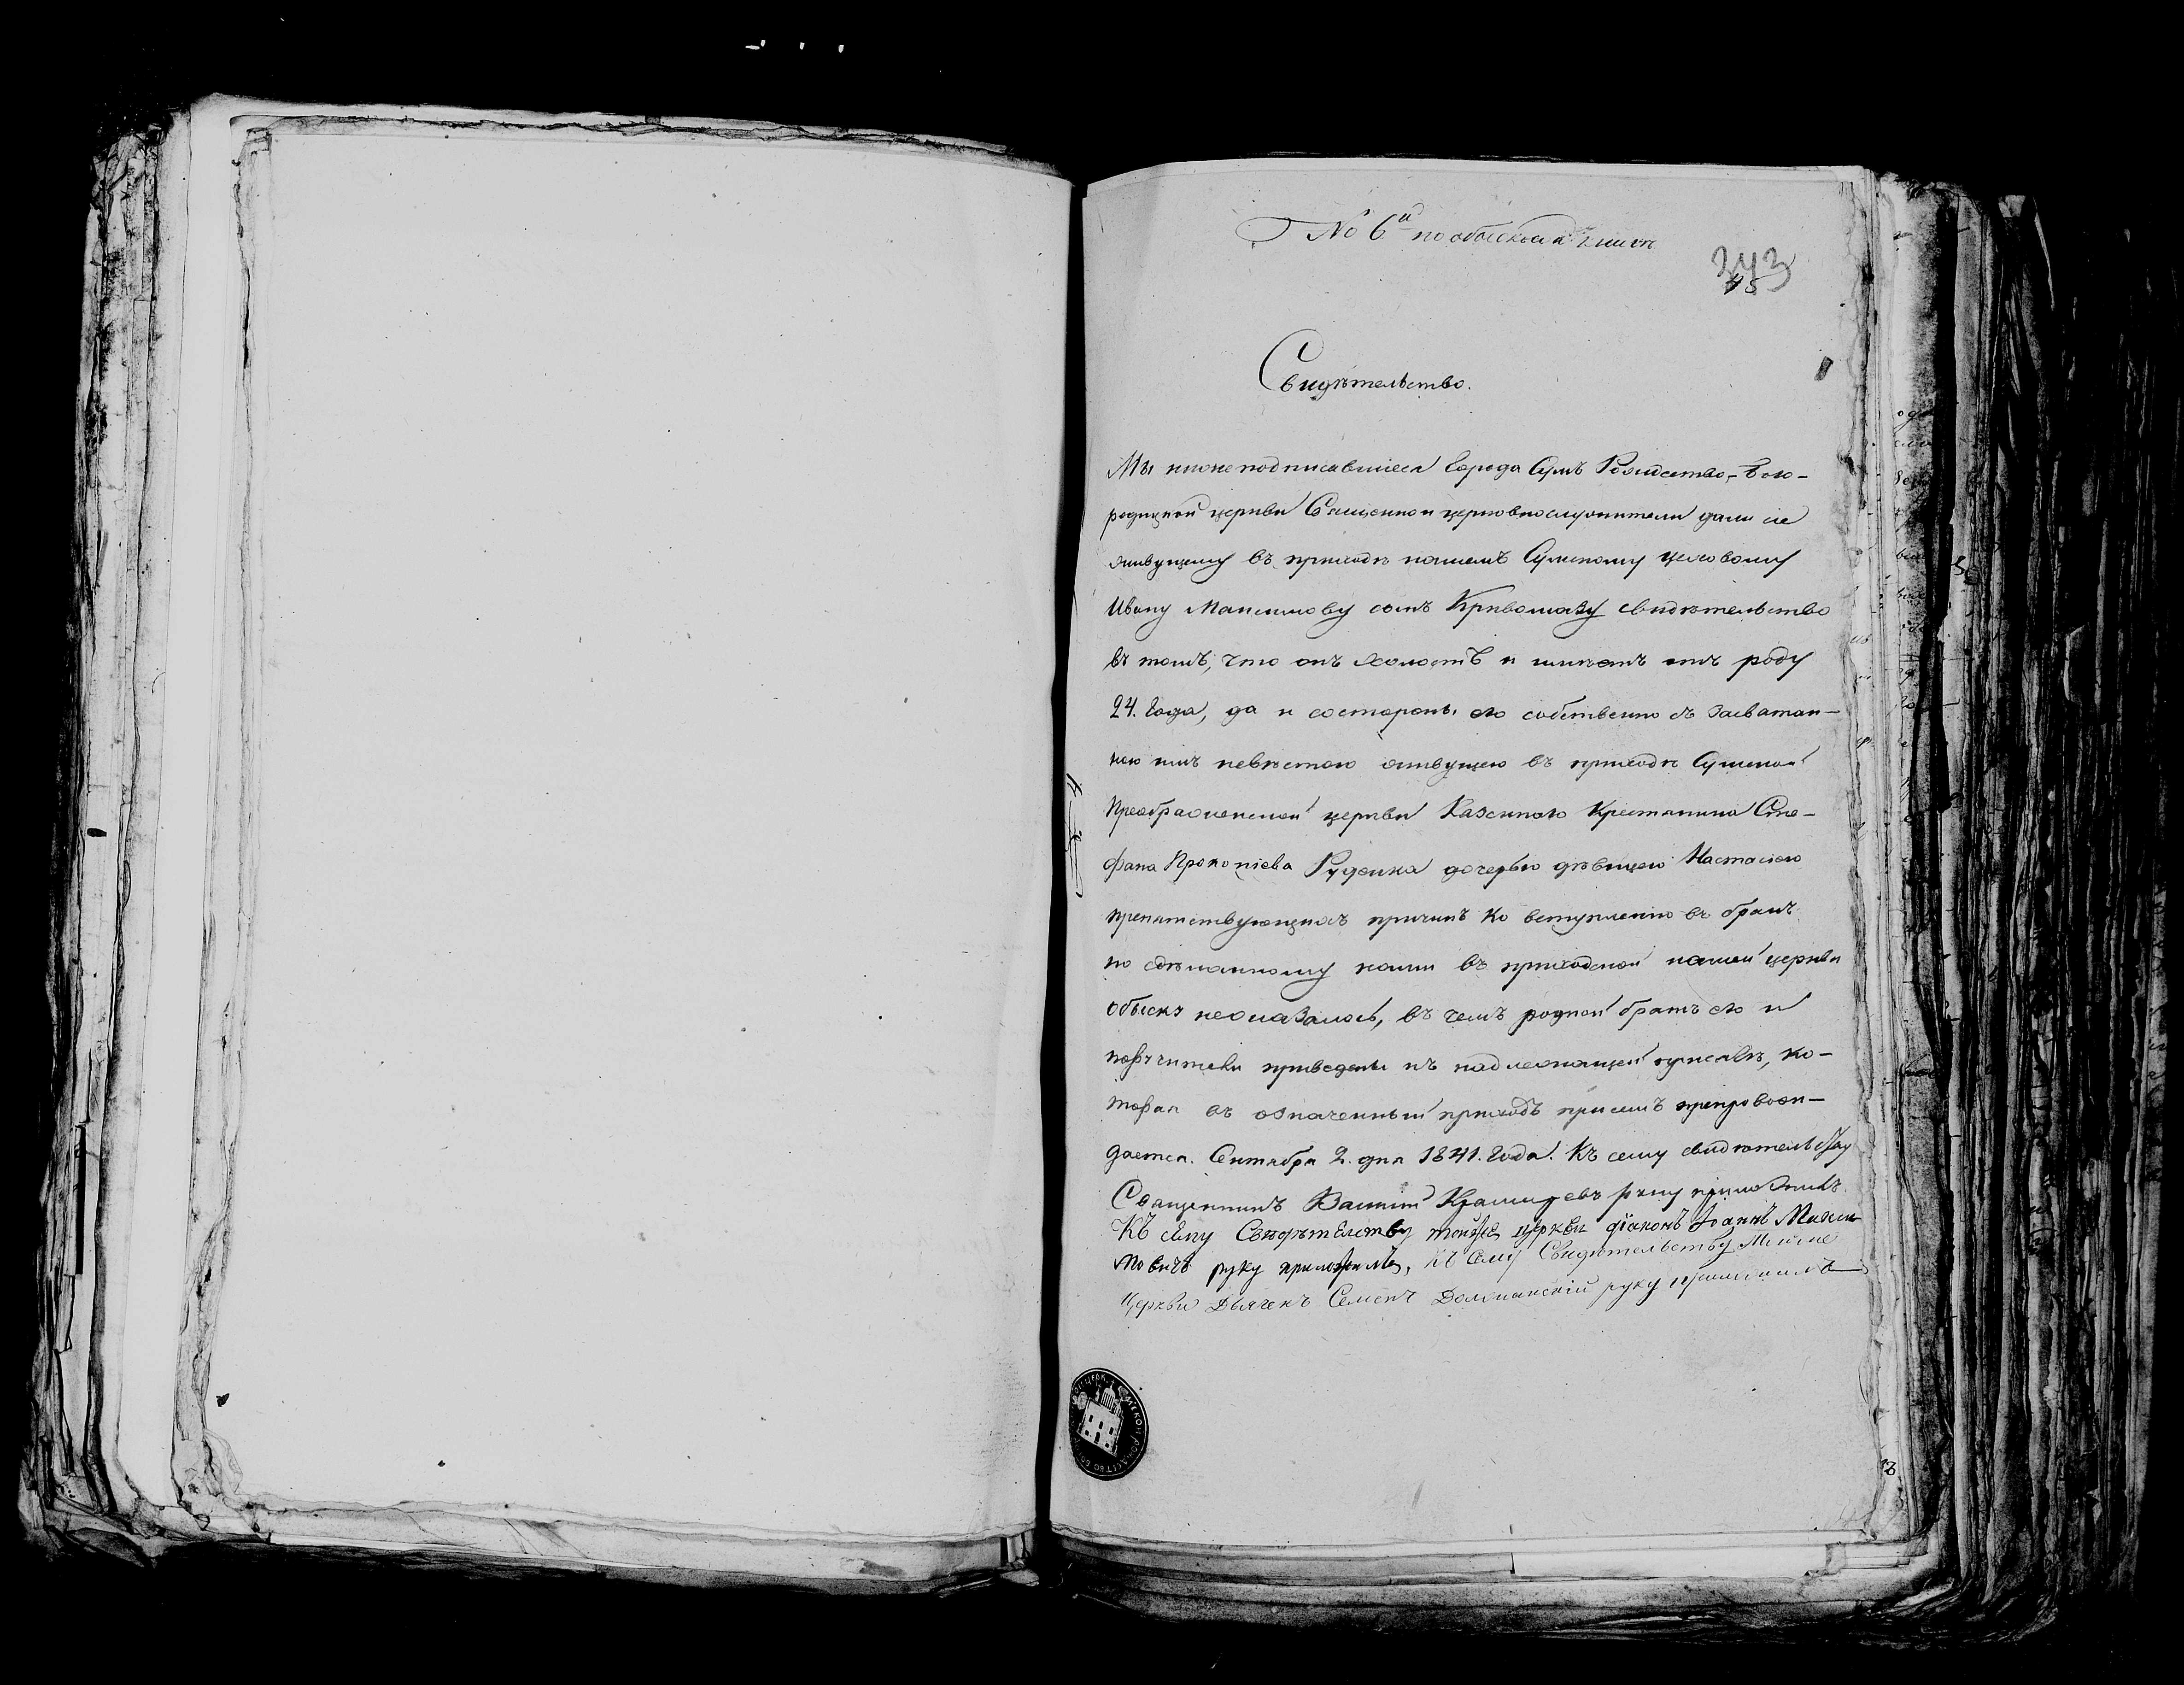 № 6й по обыскной книгѣ
343
45
Свидѣтельство.
Мы нижеподписавшіеся города Сумъ Рождество-Бого-
родицкой церкви Священно и церковнослужители дали сіе
живущему въ приходѣ нашемъ Сумскому цеховому
Ивану Максимову сыну Кривомазу свидѣтельство
въ томъ, что онъ холостъ и имѣетъ отъ роду
24. года, да и состороны его собственно съ засватан-
ною имъ невѣстою живущею въ приходѣ Сумской
Преображенской церкви Казеннаго Крестьянина Сте-
фана Прокопіева Руденка дочерью дѣвицею Настасіею
препятствующихъ причинъ ко вступленію въ бракъ
по сдѣланному нами въ приходской нашей церкви
обыску неоказалось, въ чемъ родной братъ его и
поручители приведены къ надлежащей присягѣ, ко-
торая въ означенный приходъ присемъ препровож-
дается. Сентября 2. дня 1841. года. Къ сему свидѣтельству
Священникъ Василій руку приложилъ.
Къ сему Свидѣтельству тояже церкви діаконъ Іоаннъ Макси
мовичъ руку приложилъ, Къ сему Свидѣтельству тойже
Церкви Дьячекъ Семенъ Должанскій руку приложилъ